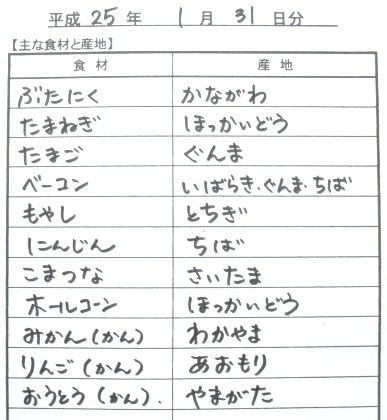 平成 25 年 1 月 31 日分
【主な食材と産地】
食材 産地
ぶたにく かながわ
たまねぎ ほっかいどう
たまご ぐんま
ベーコン いばらき・ぐんま・ちば
もやし とちぎ
にんじん ちば
こまつな さいたま
ホールコーン ほっかいどう
みかん(かん) わかやま
りんご(かん) あおもり
おうとう(かん). やまがた